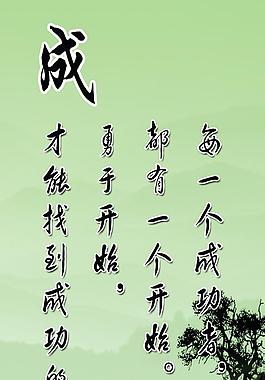 成
每一个成功者，
都有一个开始。
勇于开始，
才能找到成功的